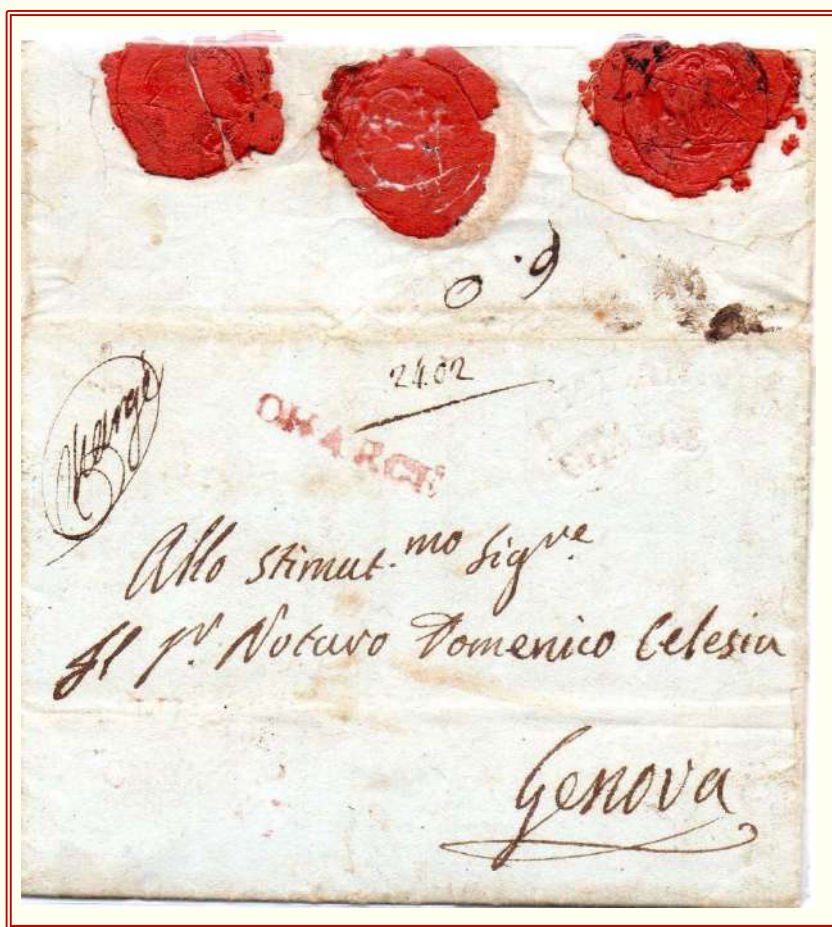 6.0
24.02
Charge
CHARGE
Allo stimat.mo Sigre
Il Sr. Notaro Domenico Celesia
Genova